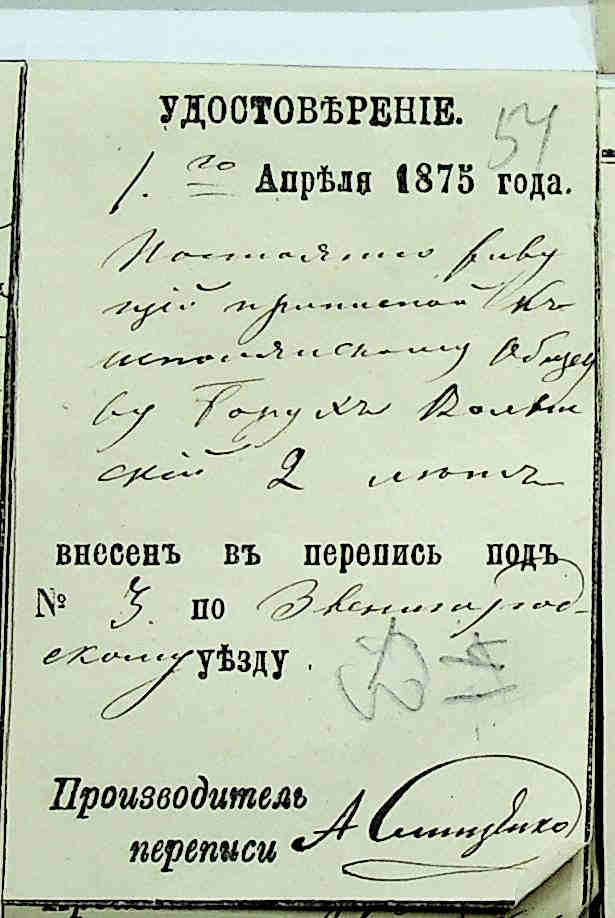 УДОСТОВѢРЕНІЕ.
54
1. го Апрѣля 1875 года.
Постоянно живу
щій припиской Къ
Обще
ву Борухъ Волын
скій 2 лютъ
внесенъ въ перепись подъ
№ 3. по Звенигород-
скому уѣзду.
Производитель
переписи А